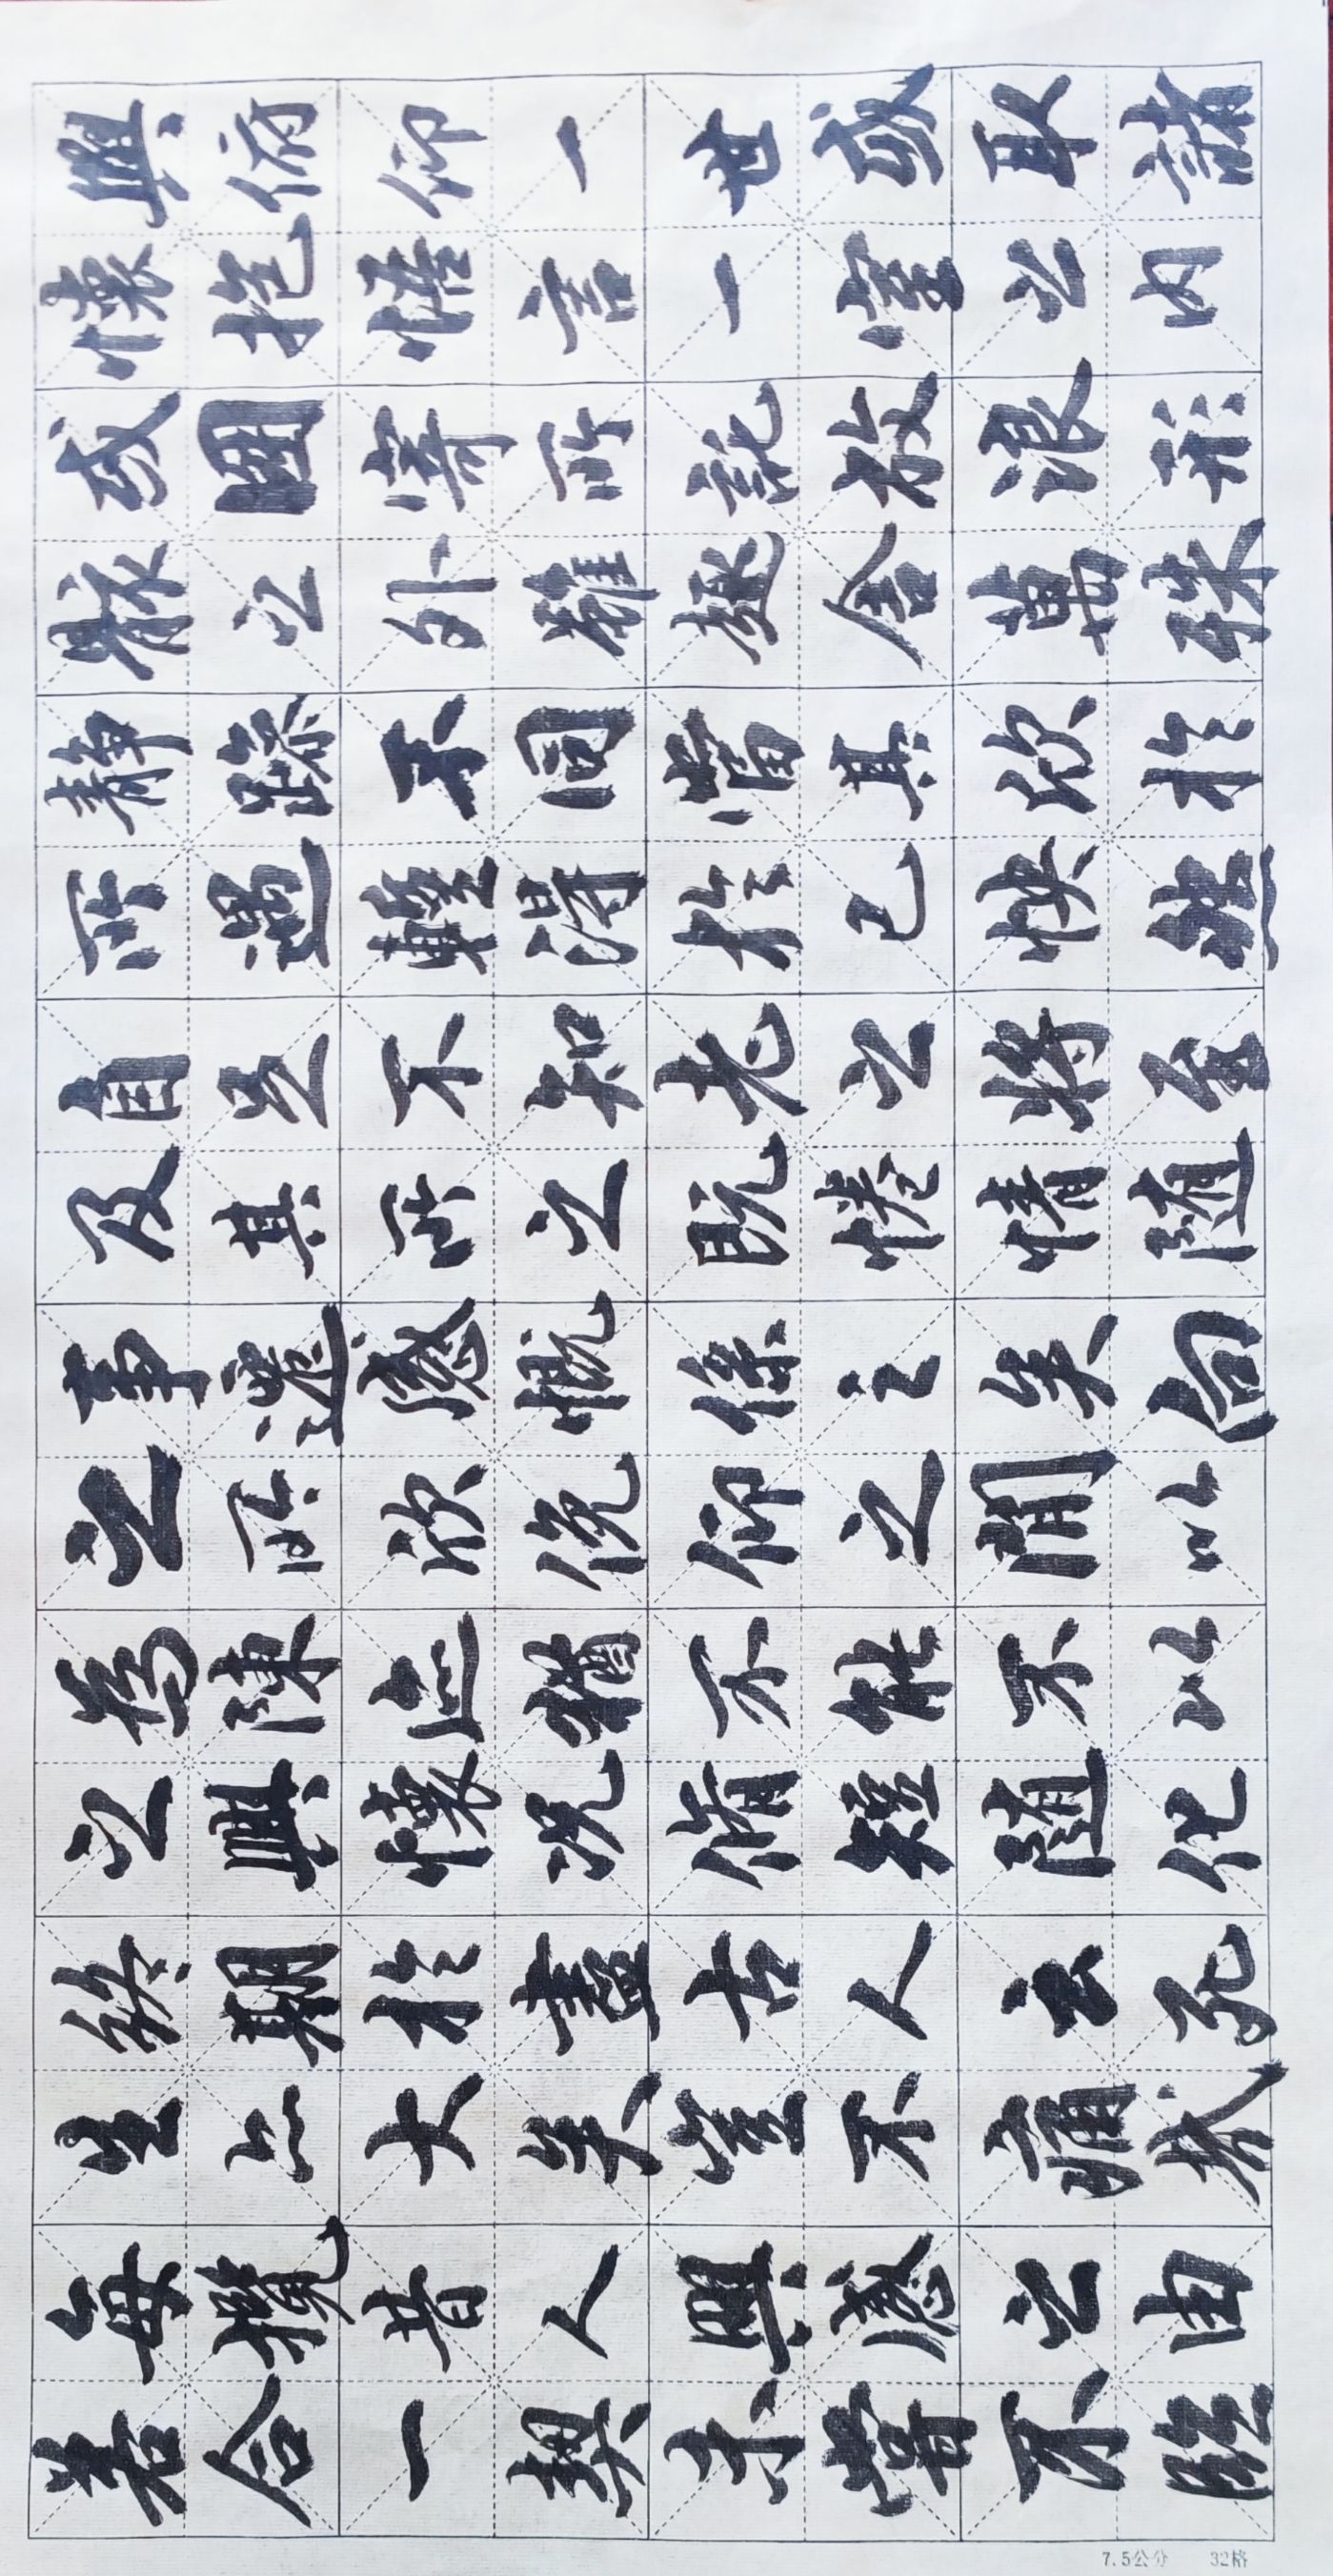 與俯仰一世或取諸
懷抱悟言一室之內
或因寄所託放浪形
骸之外雖趣舍萬殊
静躁不同當其欣於
所遇蹔得於己快然
自足不知老之將至
及其所之既惓情隨
事遷感慨係之矣向
之所欣俛仰之閒以
為陳迹猶不能不以
之興懷況脩短隨化
終期於盡古人云死
生亦大矣豈不痛哉
每攬昔人興感之由
若合一契未嘗不臨
7.5公分 32格